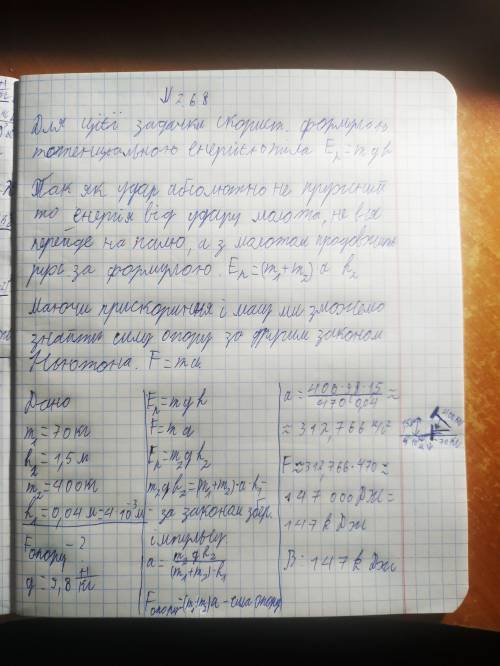 N 268
Для цієї задачки скорист. формулою
потенціального енергією тіла Eп = mgh
Так як удар абсолютно не пружний
то енергія від удару молота, не вся
перейде на палю, а з молотом продовжить
рух за формулою. Eп = (m₁+m₂) a h₂
Маючи прискорення і масу ми зможемо
знайти силу опору за другим законом
Ньютона. F = ma
Дано
m₁ = 70 кг
h₂ = 1,5 м
m₂ = 400 кг
h₁ = 0,04 м = 4·10⁻³ м
Fопору - ?
g = 9,8 Н/кг
Eп = mgh
F = ma
Eп = m₂gh₂
m₂gh₂ = (m₁+m₂)·a·h₁ =
- за законом збер.
імпульсу
a = m₂gh₂ / (m₁+m₂)·h₁
Fопору = (m₁+m₂)a - сила опору
a = 400·9,8·1,5 / 470·0,04 ≈
≈ 312,766 м/с²
F ≈ 312,766·470 ≈
147 000 Дж =
147 k Дж
В: 147 k Дж